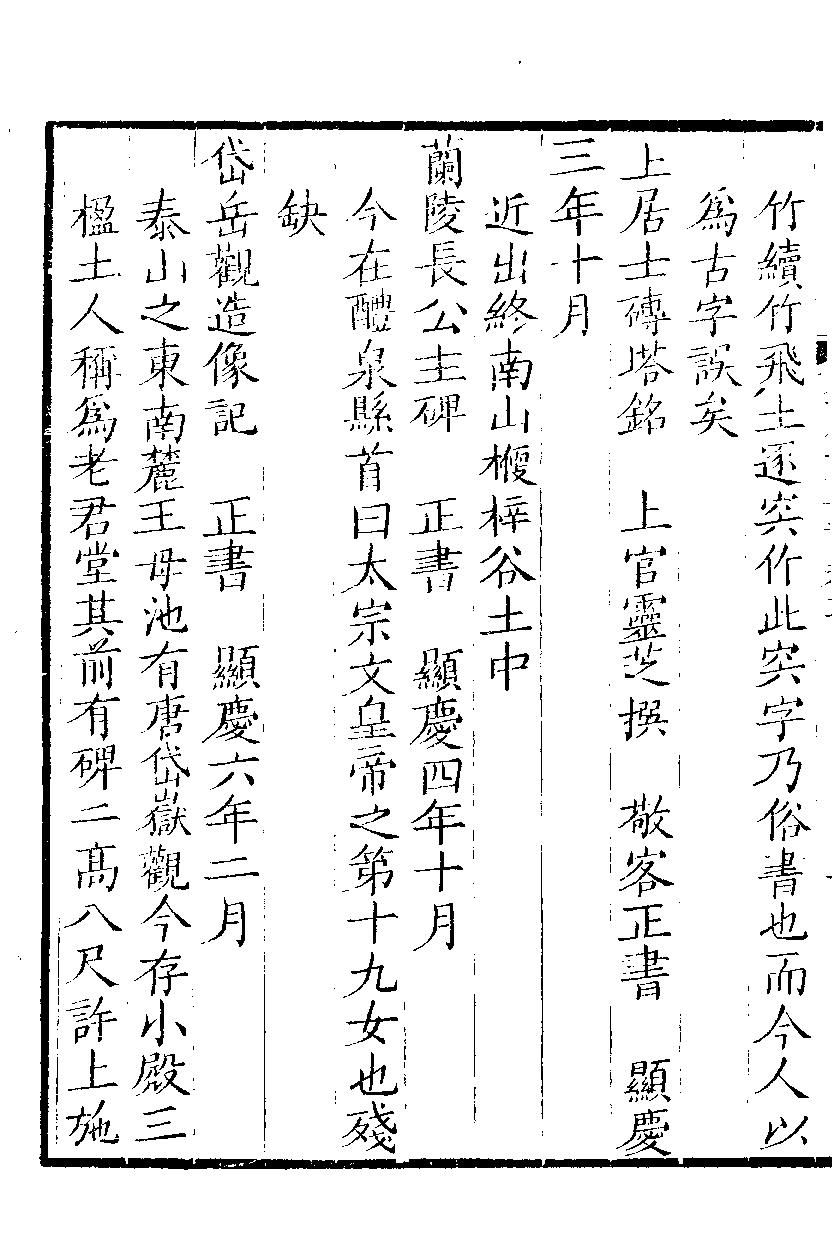 竹續竹飛土逐宍作此宍字乃俗書也而今人以
為古字誤矣
上居士磚塔銘　上官靈芝撰　敬客正書　顯慶
三年十月
近出終南山楩梓谷土中
蘭陵長公主碑　正書　顯慶四年十月
今在醴泉縣首曰太宗文皇帝之第十九女也殘
缺
岱岳觀造像記　正書　顯慶六年二月
泰山之東南麓王母池有唐岱嶽觀今存小殿三
楹土人稱為老君堂其前有碑二高八尺許上施